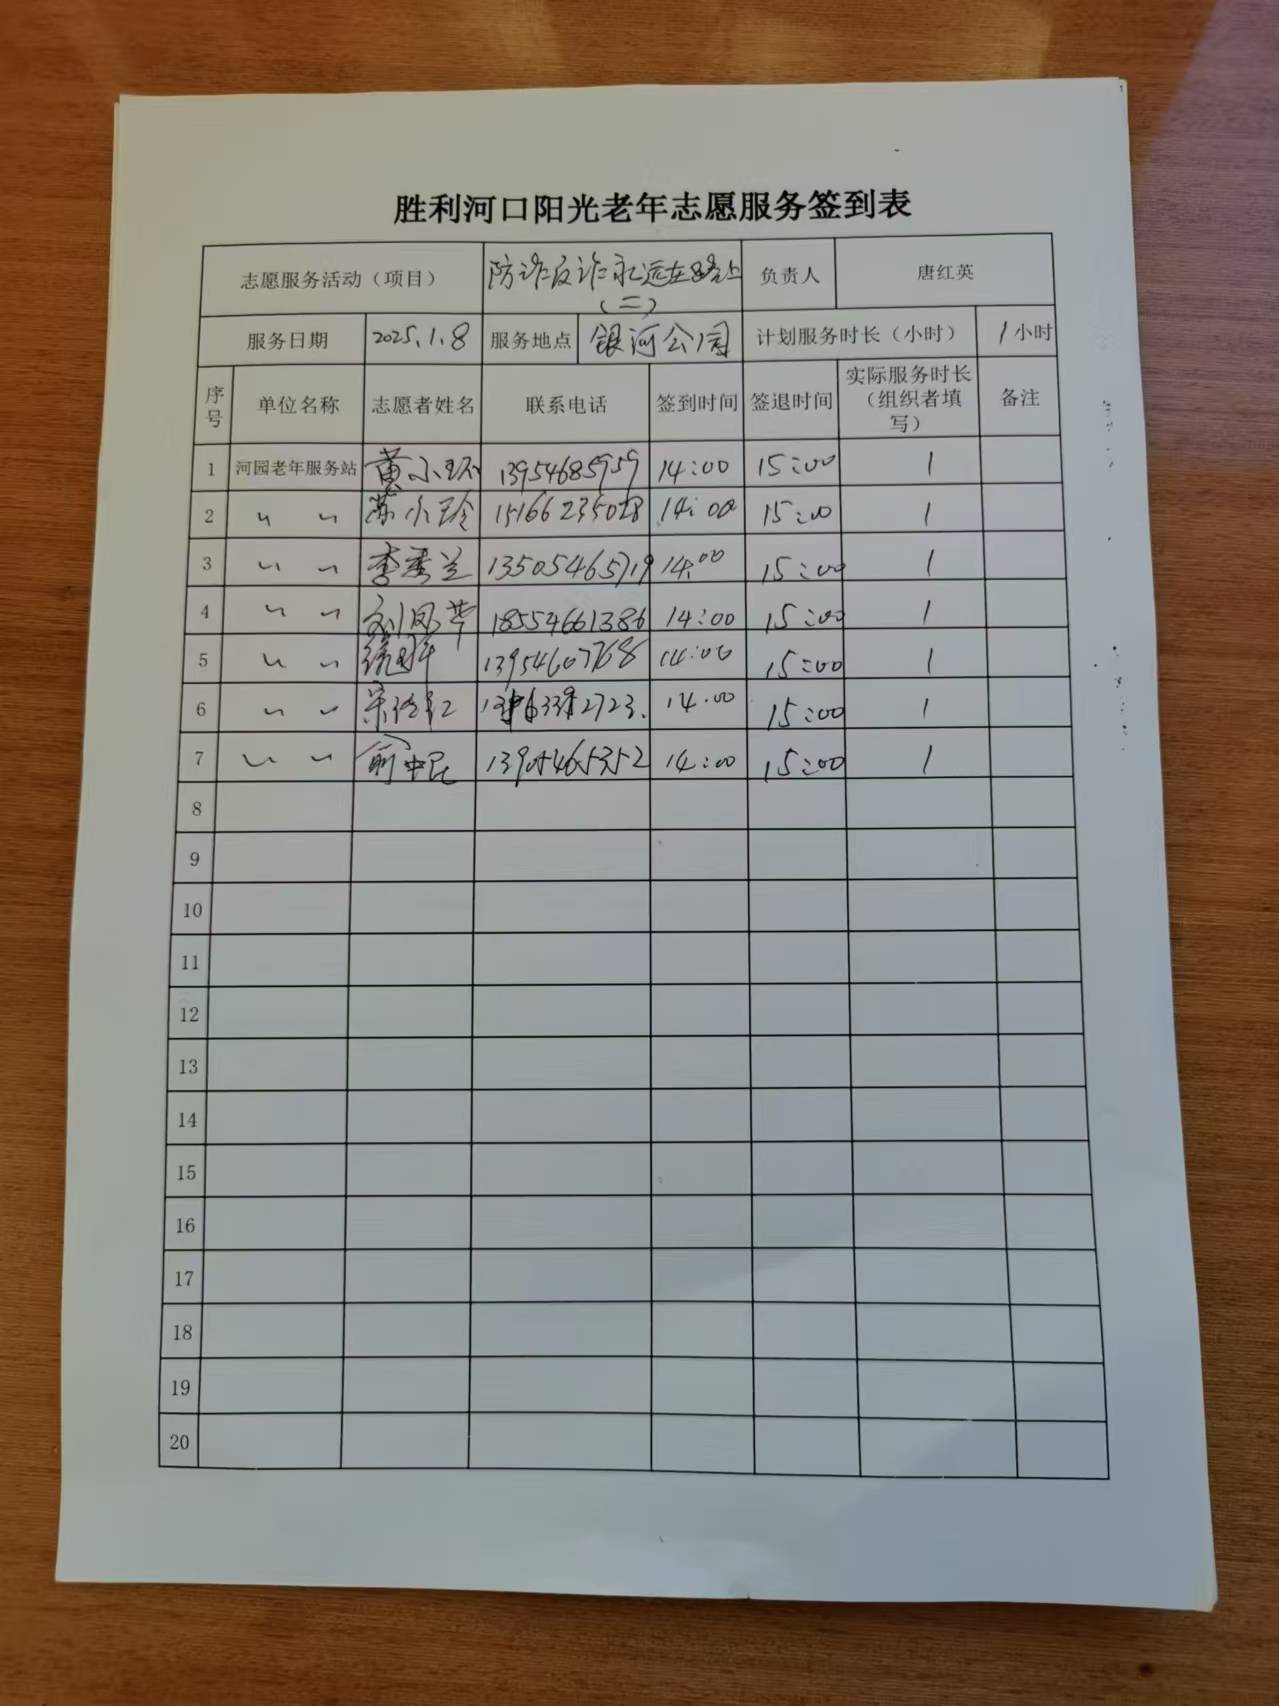 胜利河口阳光老年志愿服务签到表
志愿服务活动（项目） 防诈反诈永远在路上（二） 负责人 唐红英
服务日期 2025.1.8 服务地点 银河公园 计划服务时长（小时） 1小时
序号 单位名称 志愿者姓名 联系电话 签到时间 签退时间 实际服务时长（组织者填写） 备注
1 河园老年服务站 黄小环 13954685959 14:00 15:00 1
2 〃 〃 苏小玲 15166235028 14:00 15:00 1
3 〃 〃 李秀兰 13505465719 14:00 15:00 1
4 〃 〃 刘凤华 18554661386 14:00 15:00 1
5 〃 〃 13954607768 14:00 15:00 1
6 〃 〃 14:00 15:00 1
7 〃 〃 13905465352 14:00 15:00 1
8
9
10
11
12
13
14
15
16
17
18
19
20